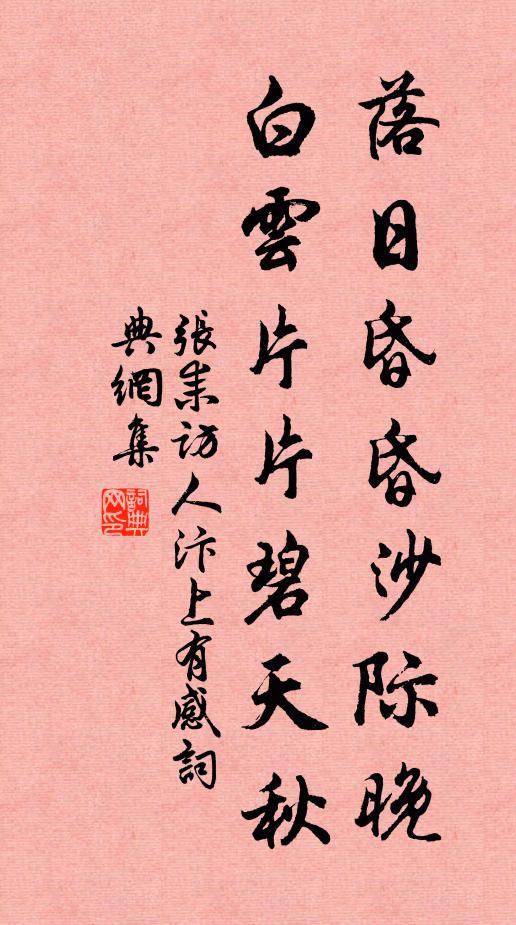 落日昏昏沙际晚
白雲片片碧天秋
張耒訪人汴上有感詞
典網集
詞典
网印